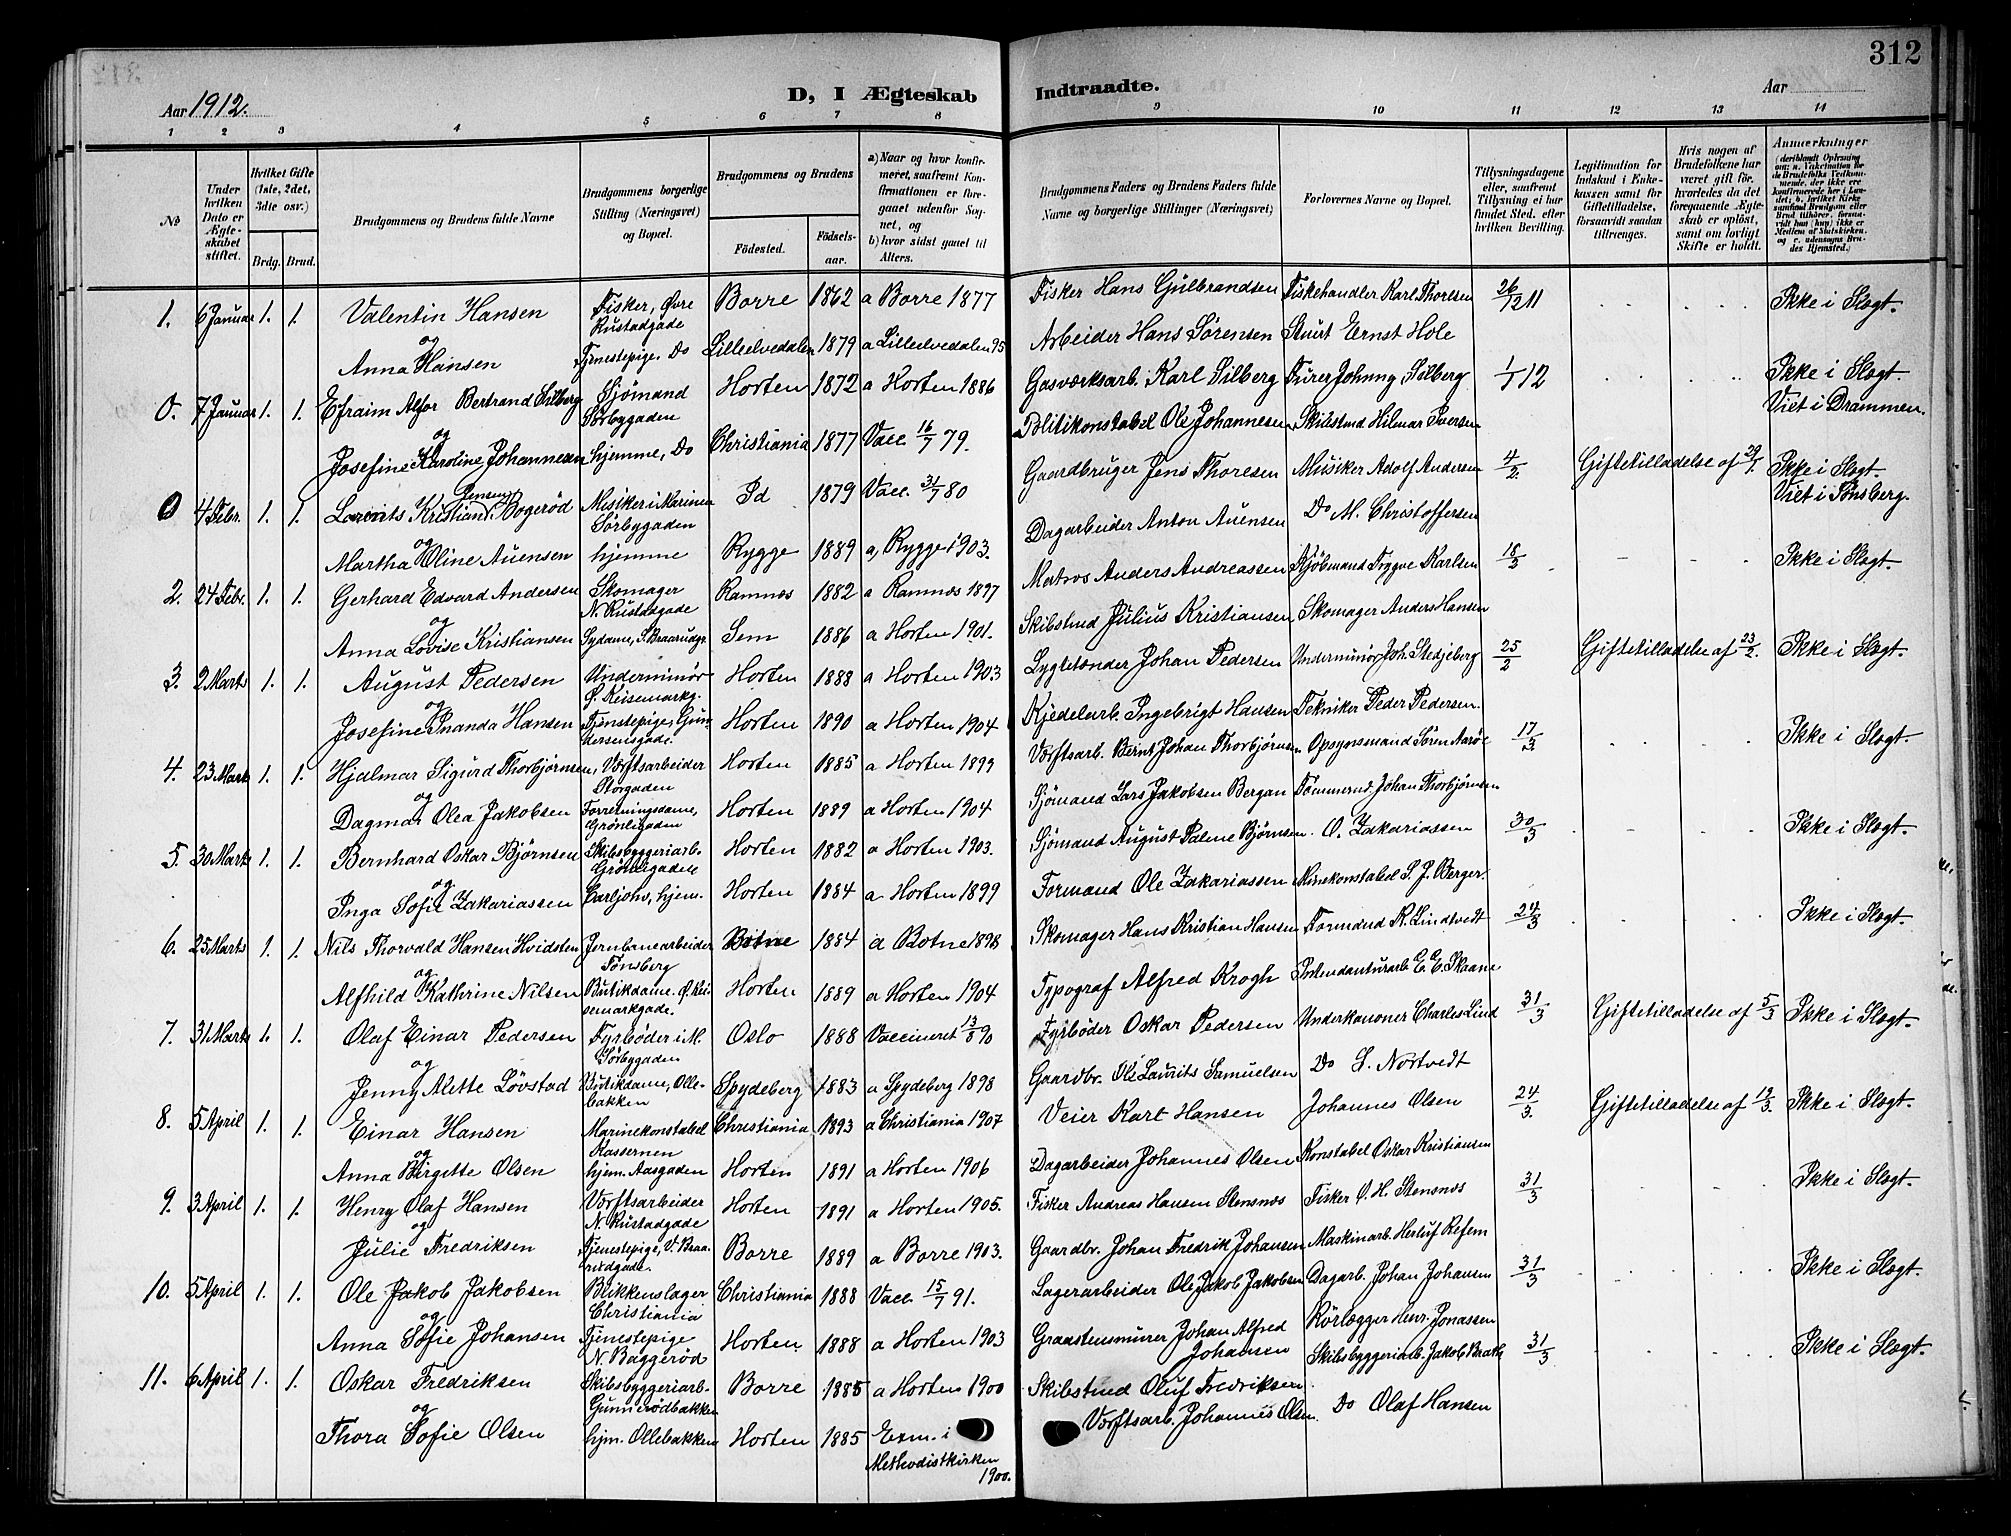 312
Aar 1912.
D, I Ægteskab Indtraadte.
Aar
1 2 3 4 5 6 7 8 9 10 11 12 13 14
№
Under hvilken Dato er Ægteskabet stiftet.
Hvilket Gifte (1ste, 2det, 3die osv.)
Brdg. Brud.
Brudgommens og Brudens fulde Navne
Brudgommens borgerlige Stilling (Næringsvei) og Bopæl.
Brudgommens og Brudens
Fødested. Fødselsaar.
a) Naar og hvor konfirmeret, saafremt Konfirmationen er foregaaet udenfor Sognet, og
b) hvor sidst gaaet til Alters.
Brudgommens Faders og Brudens Faders fulde Navne og borgerlige Stillinger (Næringsvei)
Forlovernes Navne og Bopæl.
Tillysningsdagene eller, saafremt Tillysning ei har fundet Sted, efter hvilken Bevilling.
Legitimation for Indskud i Enkekassen samt for Giftetilladelse, forsaavidt saadan tiltrænges.
Hvis nogen af Brudefolkene har været gift før, hvorledes da det foregaaende Ægteskab er opløst, samt om lovligt Skifte er holdt.
Anmærkninger
1. 6 Januar 1. 1. Valentin Hansen Fisker, Øvre Rustadgade Borre 1862 a Borre 1877 Fisker Hans Gulbrandsen Fiskehandler Karl Thorlsen 26/12 11 Ikke i Slægt.
og
Anna Hansen Tjenestepige, Do Lilleelvedalen 1879 a Lilleelvedalen 95 Arbeider Hans Sørensen Stuert Ernst Hole
0. 7 Januar 1. 1. Efraim Alfor Bertrand Silberg Sjømand Sørbygaden Horten 1872 a Horten 1886 Gasværksarb. Karl Silberg Furer Johnny Silberg 1/1 12 Ikke i Slægt. Viet i Drammen.
og
Josefine Karoline Johannesen hjemme, Do Christiania 1877 Vacc. 16/7 79. Politikonstabel Ole Johannesen Skibstmd Hilmar Iversen
0 4 Febr. 1. 1. Laurits Kristian Jensen Bogerød Musiker i Marinen Sørbygaden Id 1879 Vacc. 31/7 80 Gaardbruger Jens Thoresen Musiker Adolf Andersen 4/2 Giftetilladelse af 29/1. Ikke i Slægt. Viet i Tønsberg.
og
Martha Oline Auensen hjemme Rygge 1889 a, Rygge 1903. Dagarbeider Anton Auensen Do M. Christoffersen
2. 24 Febr. 1. 1. Gerhard Edvard Andersen Skomager N. Rustadgade Ramnes 1882 a Ramnes 1897 Matros Anders Andreassen Kjøbmand Trygve Karlsen 18/2 Ikke i Slægt.
og
Anna Lovise Kristiansen Sydame, S. Braarudgt. Sem 1886 a Horten 1901. Skibstmd Julius Kristiansen Skomager Anders Hansen
3. 2 Marts 1. 1. August Pedersen Underminør Ø. Keisemarkg. Horten 1888 a Horten 1903 Lygtetænder Johan Pedersen Underminør Joh. Stedjeberg 25/2 Giftetilladelse af 23/2. Ikke i Slægt.
og
Josefine Inanda Hansen Tjenstepige, Gundersensgade. Horten 1890 a Horten 1904 Kjedelarb. Ingebrigt Hansen Tekniker Peder Pedersen.
4. 23 Marts 1. 1. Hjalmar Sigurd Thorbjørnsen, Værftsarbeider Storgaden Horten 1885 a Horten 1899 Værftsarb. Bernt Johan Thorbjørnsen Opsynsmand Søren Aarøe 17/3 Ikke i Slægt.
og
Dagmar Olea Jakobsen Forretningsdame, Grønligaden Horten 1889 a Horten 1904 Sjømand Lars Jakobsen Bergan Tømmermd Johan Thorbjørnsen
5. 30 Marts 1. 1. Bernhard Oskar Bjørnsen Skibsbyggeriarb. Grønligaden Horten 1882 a Horten 1903. Sjømand August Palme Bjørnsen O. Zakariassen 30/3 Ikke i Slægt.
og
Inga Sofie Zakariassen Carljohv, hjem. Horten 1884 a Horten 1899 Formand Ole Zakariassen Minekonstabel S. J. Berger
6. 25 Marts 1. 1. Nils Thorvald Hansen Hvidsten Jernbanearbeider Tønsberg Botne 1884 a Botne 1898 Skomager Hans Kristian Hansen Formand K. Lindtvedt 24/3 Ikke i Slægt.
og
Alfhild Kathrine Nilsen Butikdame. Ø. Keisemarkgade. Horten 1889 a Horten 1904 Typograf Alfred Krogh Intendanturarb. E. E. Skaane
7. 31 Marts 1. 1. Olaf Einar Pedersen Fyrbøder i M. Sørbygaden Oslo 1888 Vaccineret 13/8 90 Fyrbøder Oskar Pedersen Underkanoner Charles Lind 31/3 Giftetilladelse af 5/3 Ikke i Slægt.
og
Jenny Alette Løvstad Butikdame, Ollebakken Spydeberg 1883 a Spydeberg 1898 Gaardbr. Ole Laurits Samuelsen Do L. Nortvedt
8. 5 April 1. 1. Einar Hansen Marinekonstabel Kassernen Christiania 1893 a Christiania 1907 Veier Karl Hansen Johannes Olsen 24/3. Giftetilladelse af 19/3. Ikke i Slægt.
og
Anna Birgitte Olsen hjem. Aasgaden Horten 1891 a Horten 1906 Dagarbeider Johannes Olsen Konstabel Oskar Kristiansen
9. 3 April 1. 1. Henry Olaf Hansen Værftsarbeider N. Rustadgade Horten 1891 a Horten 1905. Fisker Andreas Hansen Stensnæs Fisker O. H. Stensnæs 31/3 Ikke i Slægt.
og
Julie Fredriksen Tjenestepige, V. Braarudgade. Borre 1889 a Borre 1903. Gaardbr. Johan Fredrik Johansen Maskinarb. Herluf Refem
10. 5 April 1. 1. Ole Jakob Jakobsen Blikkenslager Christiania Christiania 1888 Vacc. 15/7 91. Lagerarbeider Ole Jakob Jakobsen Dagarb. Johan Johansen 31/3 Ikke i Slægt.
og
Anna Sofie Johansen Tjenestepige N. Baggerød Horten 1888 a Horten 1903 Graastensmurer Johan Alfred Johansen Rørlægger Henr. Jonassen
11. 6 April 1. 1. Oskar Fredriksen Skibsbyggeriarb. Gunnerødbakken Borre 1885 a Horten 1900 Skibstmd Oluf Fredriksen Skibsbyggeriarb. Jakob Brath 31/3 Ikke i Slægt.
og
Thora Sofie Olsen hjm. Ollebakken Horten 1885 Exm. i Methodistkirken 1900. Værftsarb. Johannes Olsen. Do Olaf Hansen